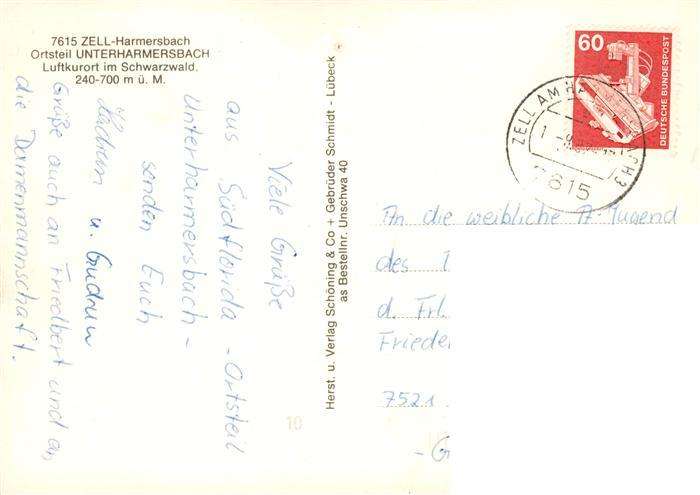 7615 ZELL-Harmersbach
Ortsteil UNTERHARMERSBACH
Luftkurort im Schwarzwald.
240-700 m ü. M.
Viele Grüße
aus Südflorida - Ortsteil
Unterharmersbach -
senden Euch
u. Gudrun
Grüße auch an Friedbert und an
die Damenmannschaft.
Herst. u. Verlag Schöning & Co + Gebrüder Schmidt - Lübeck
as Bestellnr. Unschwa 40
60
DEUTSCHE BUNDESPOST
ZELL AM
7615
An die weibliche A-Jugend
des
d. Frl.
Frieder
7521
10